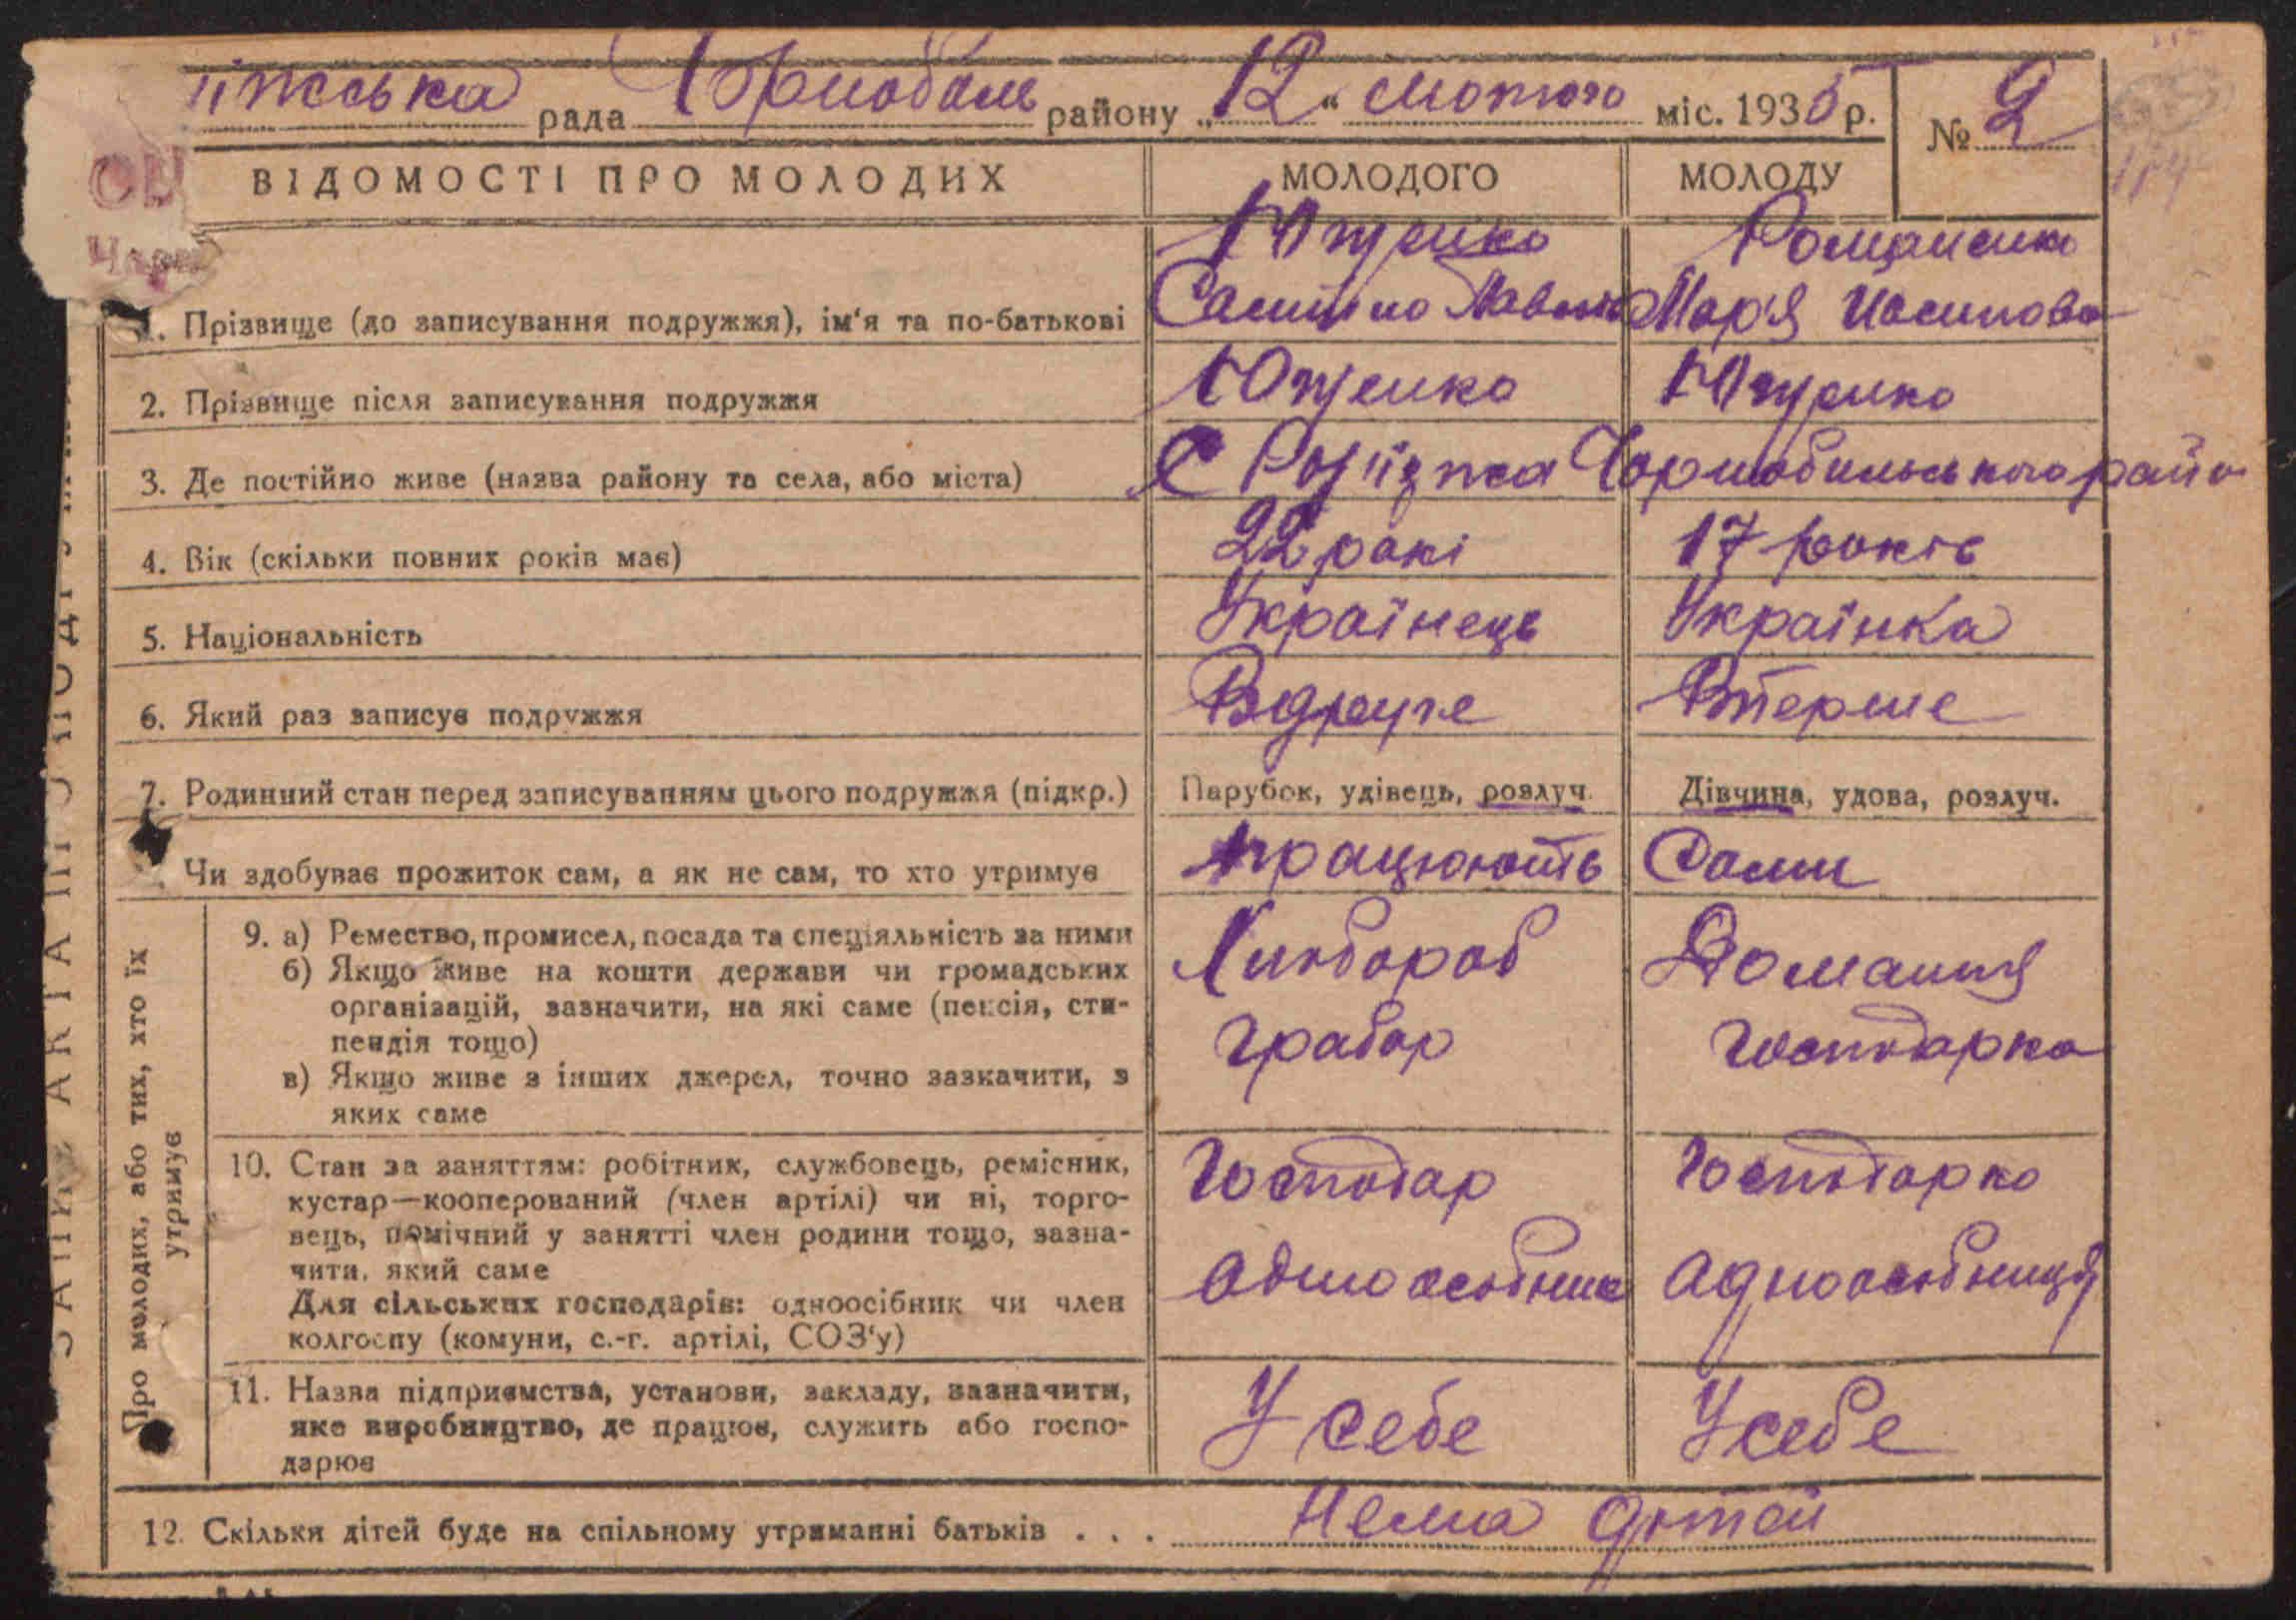 рада Чорнобиль району „12“ лютого міс. 1935 р.
№ 2
ВІДОМОСТІ ПРО МОЛОДИХ МОЛОДОГО МОЛОДУ
Ющенко Романенко
1. Прізвище (до записування подружжя), ім'я та по-батькові Самійло Мар'я
2. Прізвище після записування подружжя Ющенко Ющенко
3. Де постійно живе (назва району та села, або міста) С Чорнобильського
4. Вік (скільки повних років має) 22 рокі 17 років
5. Національність Українець Українка
6. Який раз записує подружжя Вдруге Вперше
7. Родинний стан перед записуванням цього подружжя (підкр.) Парубок, удівець, розлуч. Дівчина, удова, розлуч.
Чи здобуває прожиток сам, а як не сам, то хто утримує працюють Сами
Про молодих, або тих, хто їх
утримує
9. а) Ремество, промисел, посада та спеціяльність за ними Хлібороб Домашня
б) Якщо живе на кошти держави чи громадських
організацій, зазначити, на які саме (пенсія, сти-
пендія тощо) грабар господарка
в) Якщо живе з інших джерел, точно зазкачити, з
яких саме
10. Стан за заняттям: робітник, службовець, ремісник, Господар Господарка
кустар—кооперований (член артілі) чи ні, торго-
вець, помічний у занятті член родини тощо, зазна-
чити, який саме одноосібник одноосібниця
Для сільських господарів: одноосібник чи член
колгоспу (комуни, с.-г. артілі, СОЗ'у)
11. Назва підприємства, установи, закладу, зазначити,
яке виробництво, де працює, служить або госпо- У себе У себе
дарює
12. Скільки дітей буде на спільному утриманні батьків . . . Нема дітей